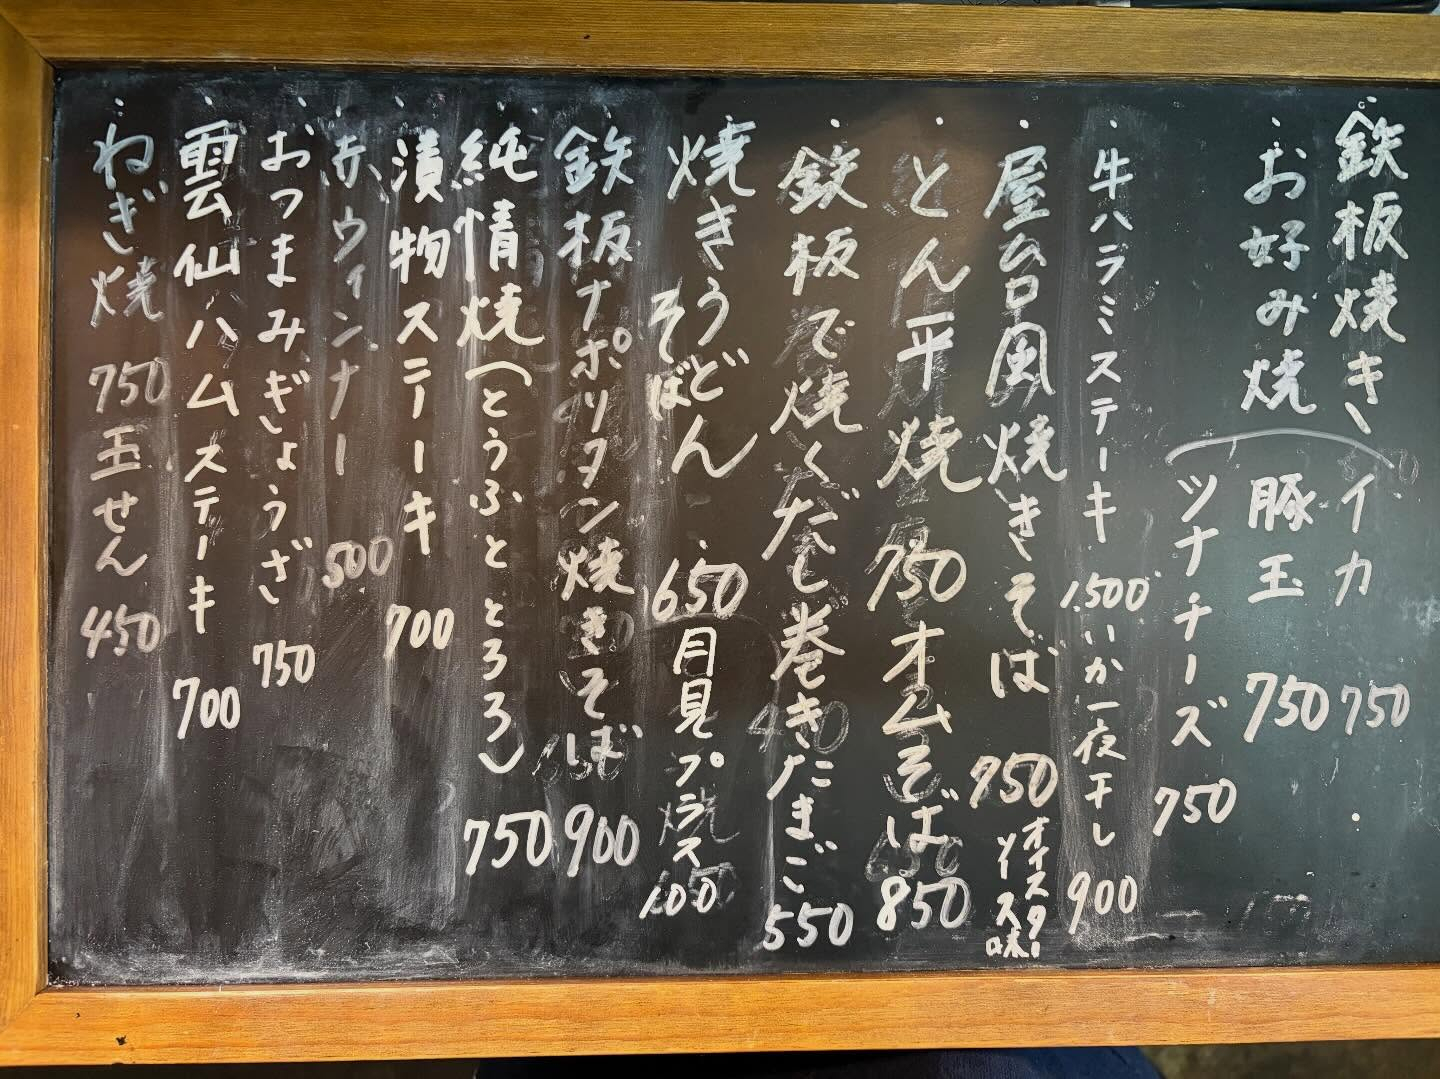 鉄板焼き
お好み焼
イカ 750
豚玉 750
ツナチーズ 750
牛ハラミステーキ 1,500 いか一夜干し 900
屋台風焼きそば 750 オイスターソース味
とん平焼 750 オムそば 850
鉄板で焼くだし巻きたまご 550
焼きうどん
そば 650 月見プラス 100
鉄板ナポリタン焼きそば 900
純情焼(とうふととろろ) 750
漬物ステーキ 700
赤ウィンナー 500
おつまみぎょうざ 750
雲仙ハムステーキ 700
ねぎ焼 750 玉せん 450